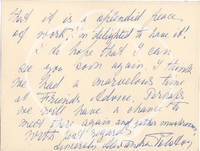 that it is a splendid peace
of work, I'm delighted to have it!
I do hope that I can
see you soon again. I think
we had a marvelous time
at Friends Advice. Perhaps
we will have a chance to
meet there again and gather mushrooms
With best regards
Sincerely, Alexandra Tolstoy